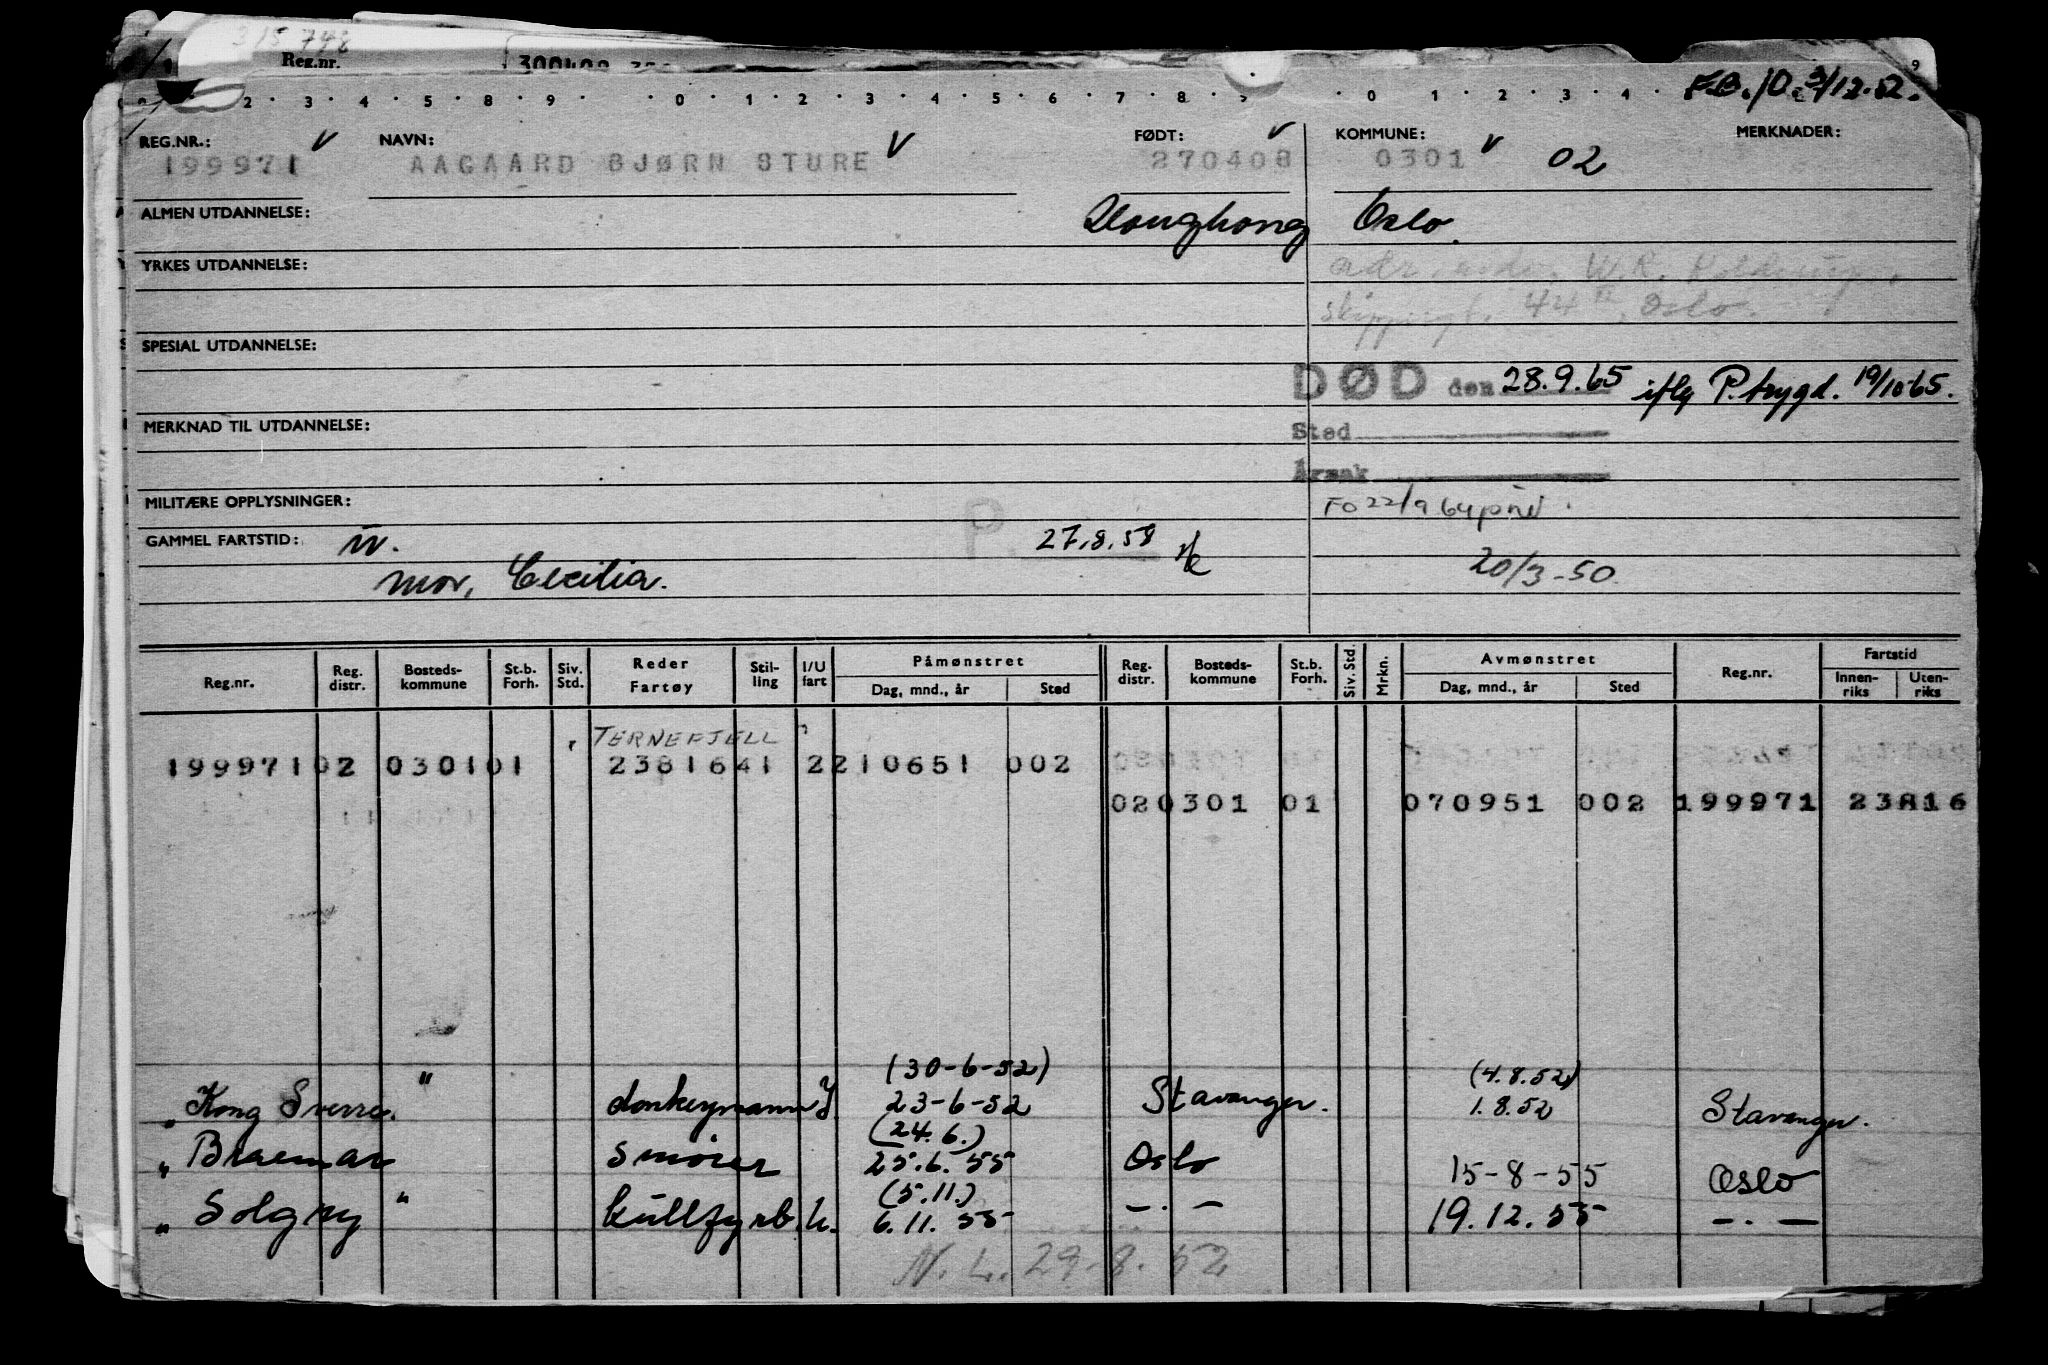 315 748
Reg.nr.
2 · 3 · 4 · 5 · 8 · 9 · · 0 · 1 · 2 · 3 · 4 · 5 · 6 · 7 · 8 · 9 · 0 · 1 · 2 · 3 · 4 · F.B./O. 3/12.52.
REG.NR.: v NAVN: v FØDT: v KOMMUNE: v MERKNADER:
199971 AAGAARD BJØRN STURE 270408 0301 02
ALMEN UTDANNELSE: Hongkong Oslo.
YRKES UTDANNELSE: W.R.
44 II, Oslo.
SPESIAL UTDANNELSE:
DØD den 28.9.65 iflg P.trygd. 19/10 65.
MERKNAD TIL UTDANNELSE: Sted
Årsak
MILITÆRE OPPLYSNINGER:
GAMMEL FARTSTID: P. 27.8.58
mor, Cecilia. 20/3-50
Reg.nr. Reg. distr. Bosteds-kommune St.b. Forh. Siv. Std. Reder Fartøy Stil-ling I/U fart Påmønstret Dag, mnd., år Sted Reg. distr. Bosteds-kommune St.b. Forh. Siv. Std. Mrkn. Avmønstret Dag, mnd., år Sted Reg.nr. Fartstid Innen-riks Uten-riks
TERNEFJELL
199971 02 0301 01 23816 41 2 210651 002
02 0301 01 070951 002 199971 23816
(30-6-52) (4.8.52)
" Kong Sverre. " donkeymann 23-6-52 Stavanger. 1.8.52 Stavanger.
(24.6.)
" Braemar smører 25.6.55 Oslo 15-8-55 Oslo
(5.11.)
" Solgry " kullfyrb. U. 6.11.55 -.- 19.12.55 -.-
N.L. 29.8.52